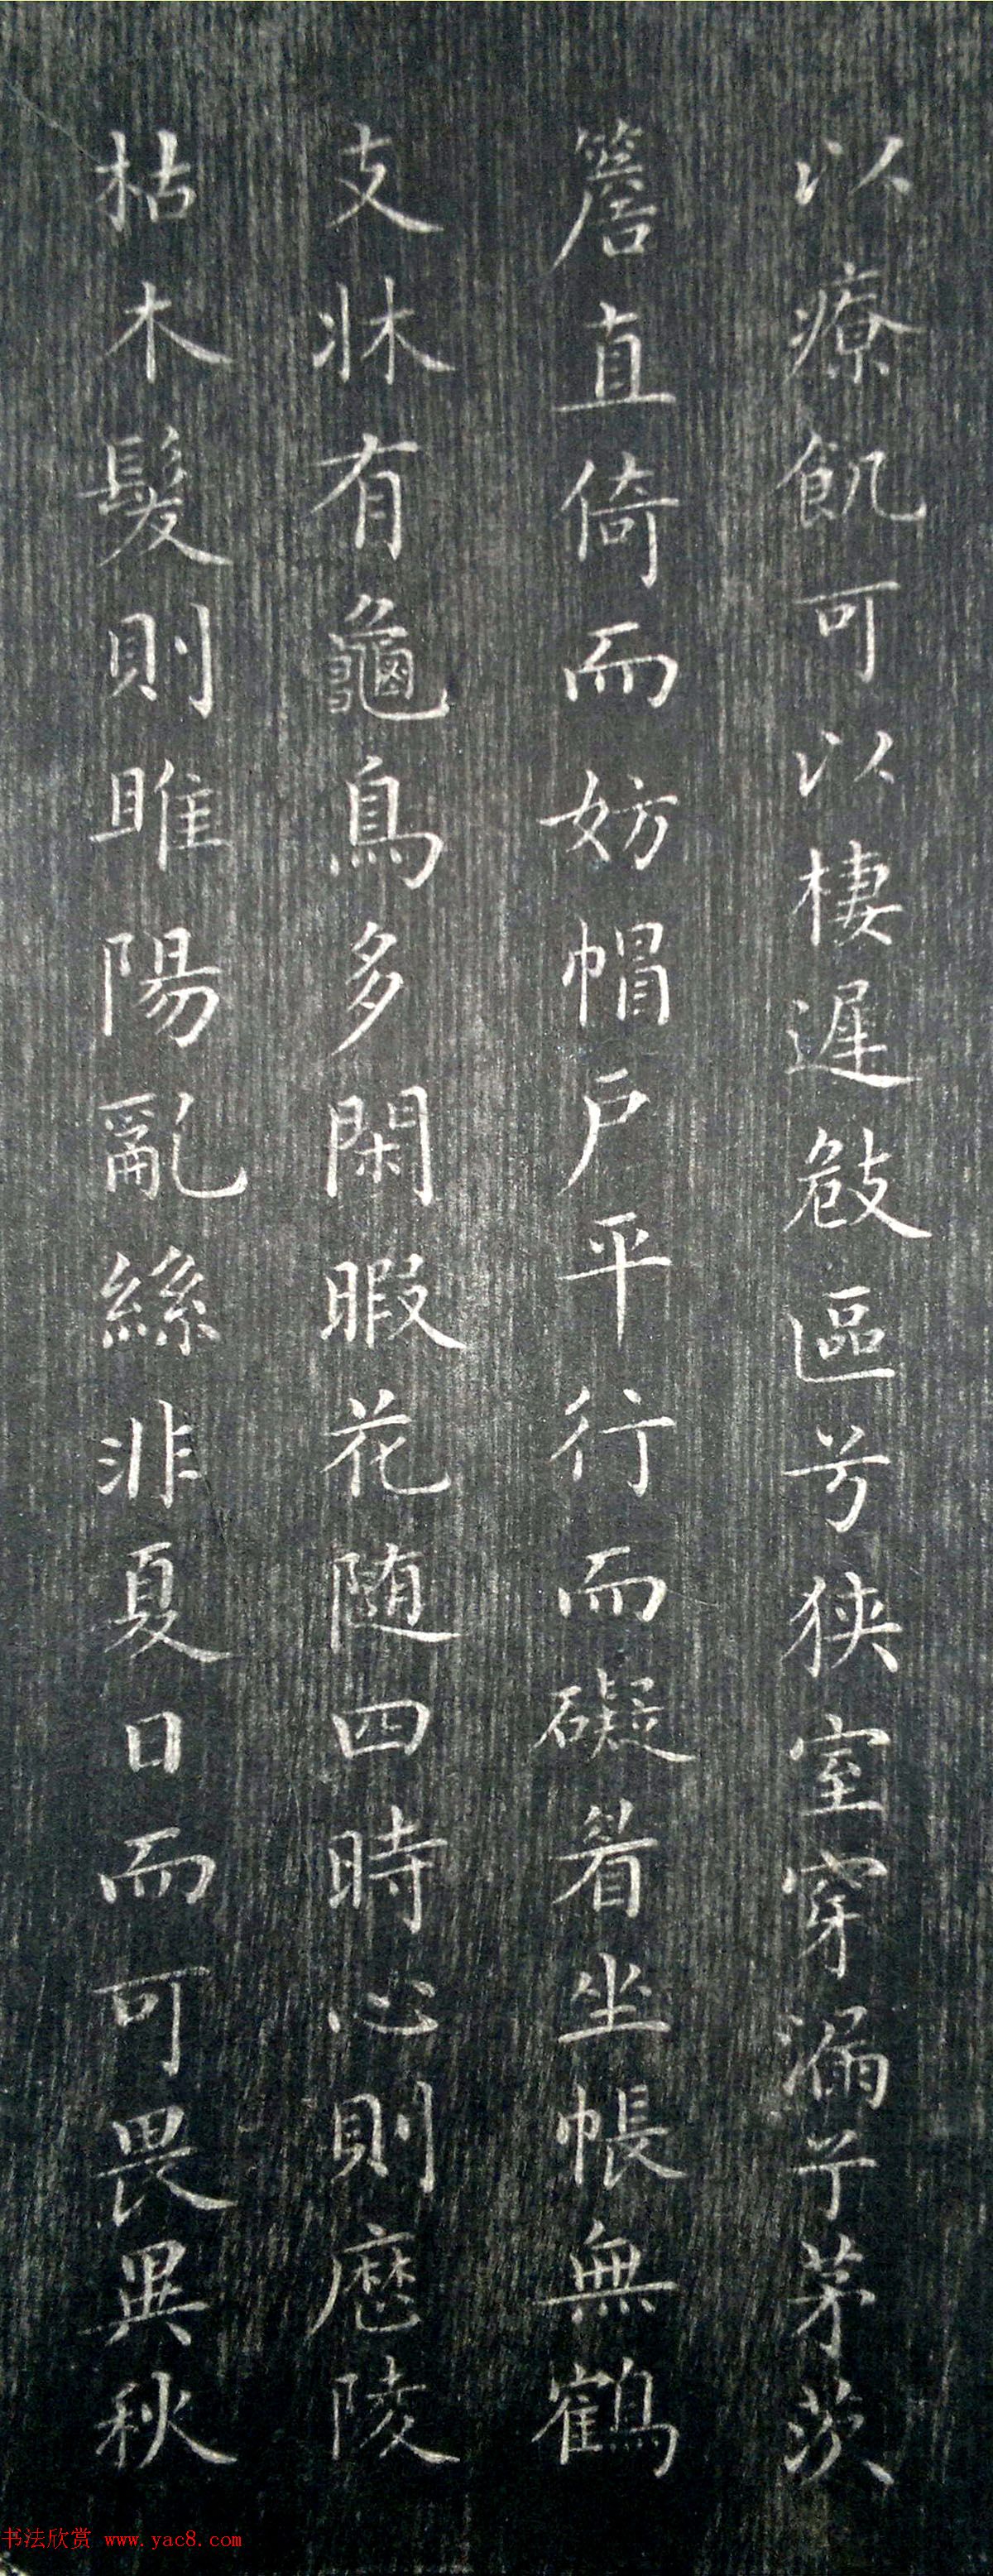 以療飢可以棲遲㩻區兮狭室穿漏兮茅茨
簷直倚而妨帽户平行而礙眉坐帳無鶴
支牀有龜鳥多閑暇花随四時心則歷陵
枯木髮則睢陽亂絲非夏日而可畏異秋
书法欣赏 www.yac8.com